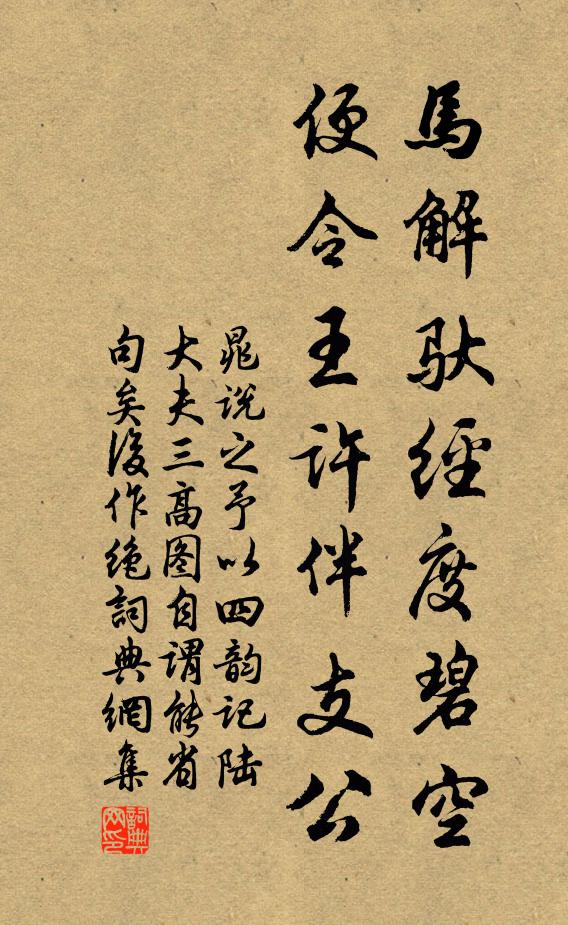 馬解馱經度碧空
便令王許伴支公
晁说之予以四韵记陆
大夫三高图自谓能省
句矣後作绝詞典網集
詞典网印